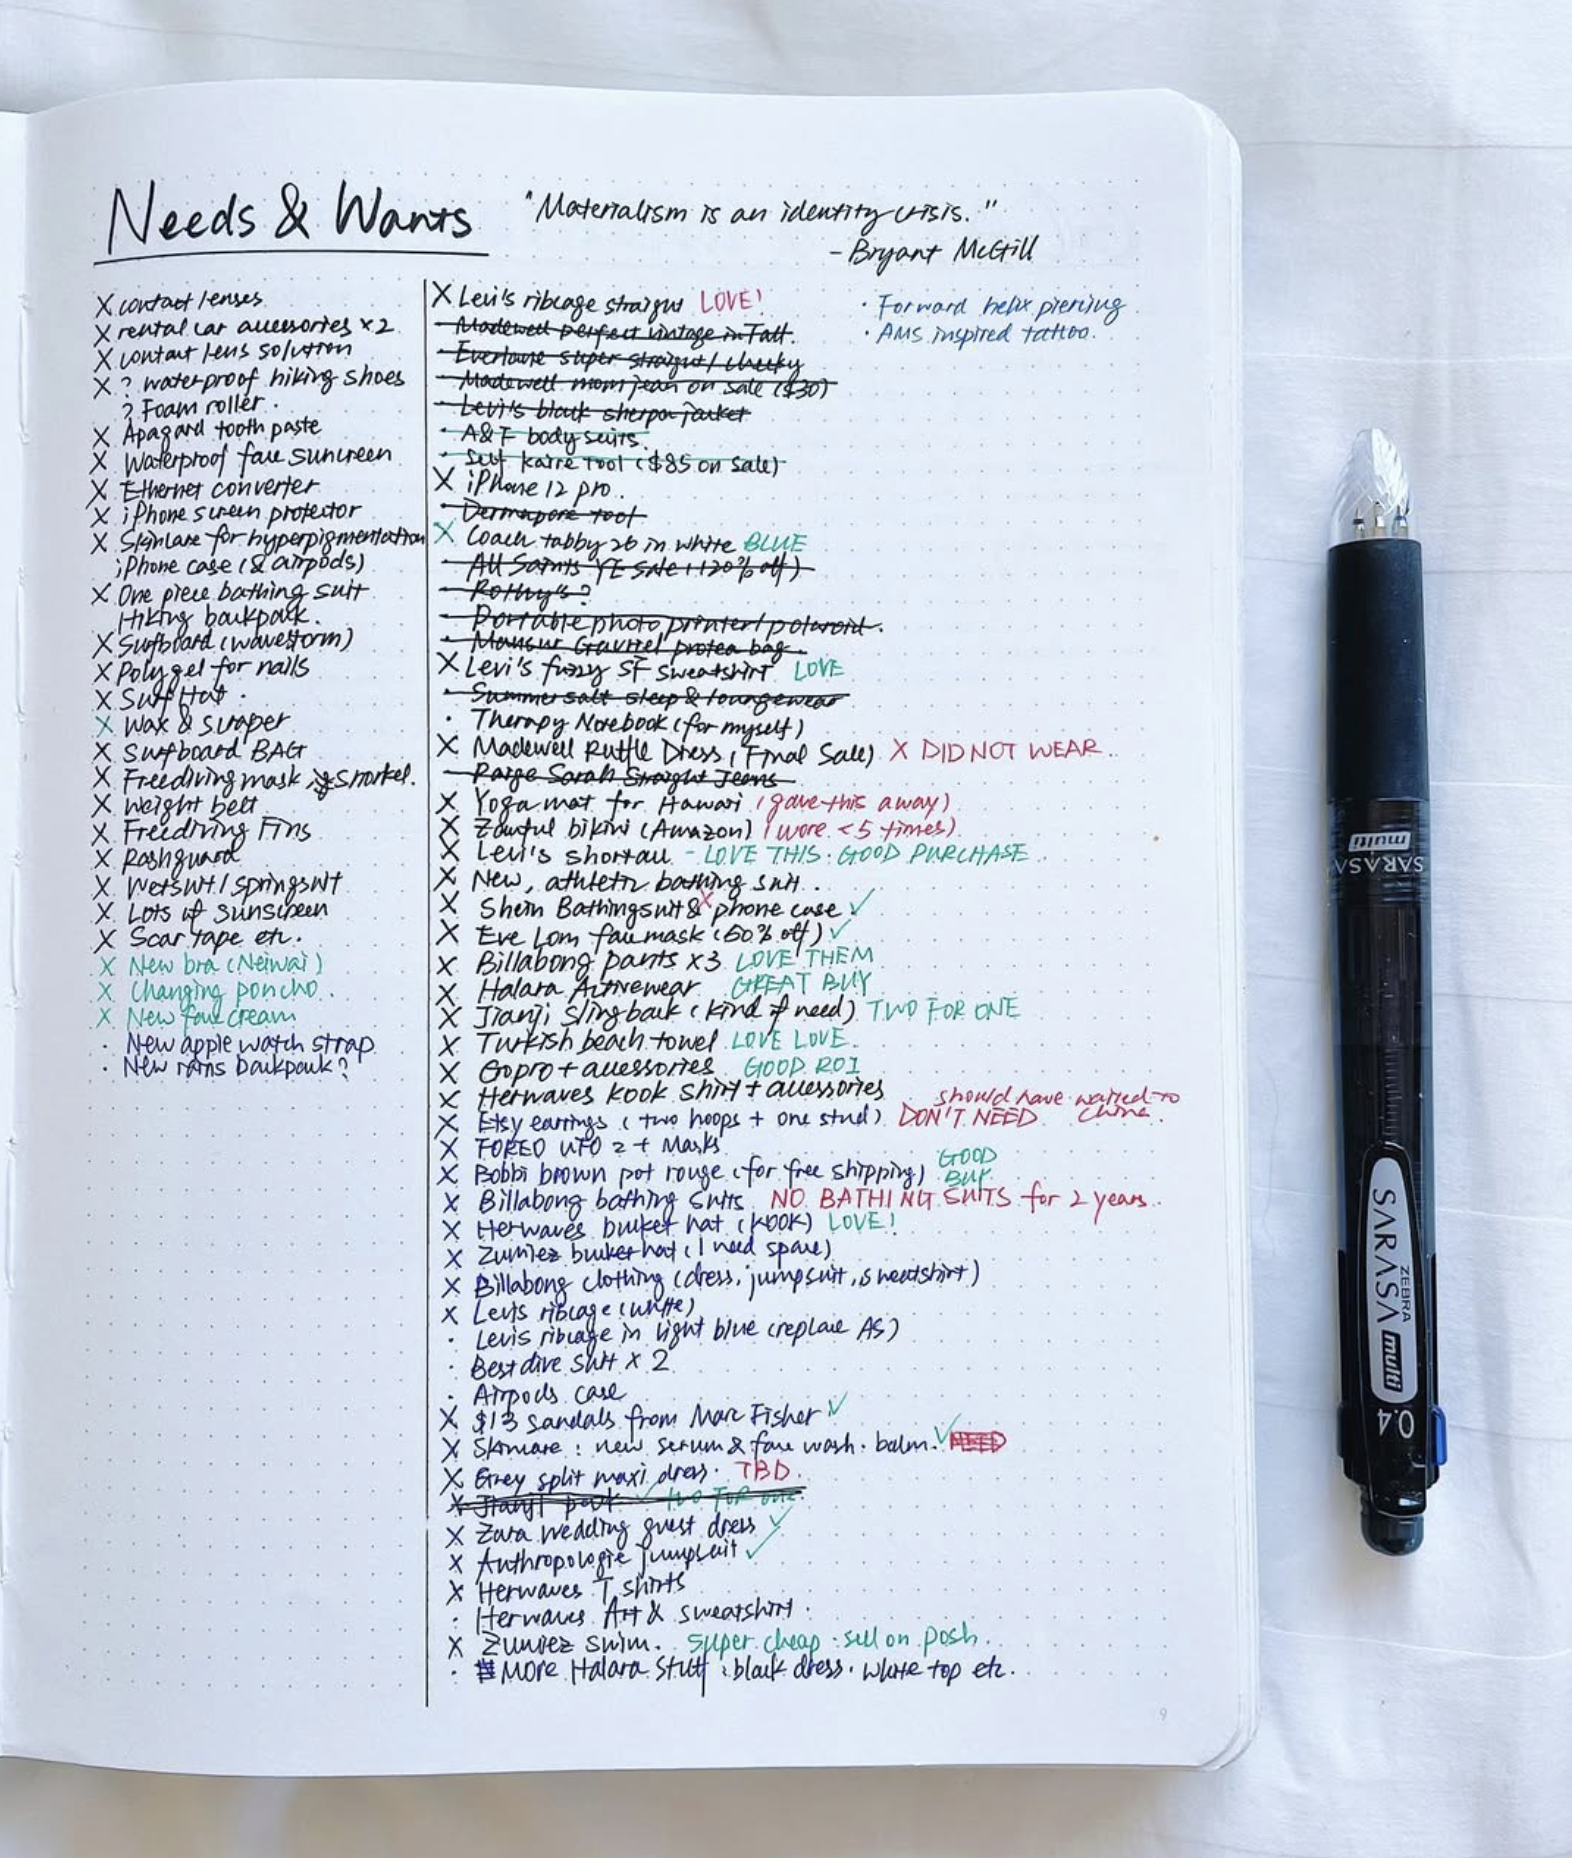 Needs & Wants
"Materialism is an identity crisis."
- Bryant McGill
X contact lenses
X rental car accessories x2
X contact lens solution
X ? waterproof hiking shoes
? Foam roller.
X Apagard tooth paste
X Waterproof face suncreen
X Ethernet converter
X iPhone screen protector
X Skincare for hyperpigmentation
iPhone case (& airpods)
X One piece bathing suit
Hiking backpack.
X Surfboard (wavestorm)
X Polygel for nails
X Surf Hat.
X Wax & scraper
X Surfboard BAG
X Freediving mask & snorkel.
X Weight belt
X Freediving Fins
X Rashguard
X Wetsuit / springsuit
X Lots of sunscreen
X Scar tape etc.
X New bra (Neiwai)
X Changing poncho.
X New face cream
· New apple watch strap
· New rains backpack?
X Levi's ribcage straight LOVE!
· Madewell perfect vintage in Tall.
· Everlane super straight / cheeky
· Madewell mom jean on sale ($30)
· Levi's black sherpa jacket
· A&F body suits.
· Self tool ($85 on sale)
X iPhone 12 pro.
· Dermapore tool
X Coach tabby 26 in white BLUE
· All Saints YE Sale (+20% off)
· Rothy's?
· Portable photo printer / polaroid.
· Mansur Gavriel protea bag.
X Levi's fuzzy SF sweatshirt LOVE
· Summersalt sleep & loungewear
· Therapy Notebook (for myself)
X Madewell Ruffle Dress (Final Sale) X DID NOT WEAR
· Paige Sarah Straight Jeans
X Yoga mat for Hawaii (gave this away)
X Zaful bikini (Amazon) (wore <5 times)
X Levi's shortall - LOVE THIS. GOOD PURCHASE
X New, athletic bathing suit.
X Shein Bathingsuit & X phone case ✓
X Eve Lom face mask (50% off) ✓
X Billabong pants x3 LOVE THEM
X Halara Activewear GREAT BUY
X Jianji slingback (kind of need) TWO FOR ONE
X Turkish beach towel LOVE LOVE.
X Gopro + accessories GOOD ROI
X Herwaves kook shirt + accessories
X Etsy earrings (two hoops + one stud) DON'T NEED should have waited to China.
X FOREO UFO 2 + Masks
X Bobbi brown pot rouge (for free shipping) GOOD BUY
X Billabong bathing suits NO BATHING SUITS for 2 years.
X Herwaves bucket hat (KOOK) LOVE!
X Zumiez bucket hat (I need spare)
X Billabong clothing (dress, jumpsuit, sweatshirt)
X Levis ribcage (white)
· Levis ribcage in light blue (replace AS)
· Bestdive suit x 2
· Airpods case
X $13 sandals from Marc Fisher ✓
X Skincare: new serum & face wash. balm. ✓ NEED
X Grey split maxi dress. TBD.
X Jianji ✓ TWO FOR ONE.
X Zara wedding guest dress ✓
X Anthropologie jumpsuit ✓
X Herwaves T shirts
· Herwaves Art & sweatshirt.
X Zumiez swim. super cheap. sell on posh.
· More Halara Stuff: black dress. white top etc.
· Forward helix piercing
· AMS inspired tattoo.
9
SARASA multi
ZEBRA
SARASA multi
0.4